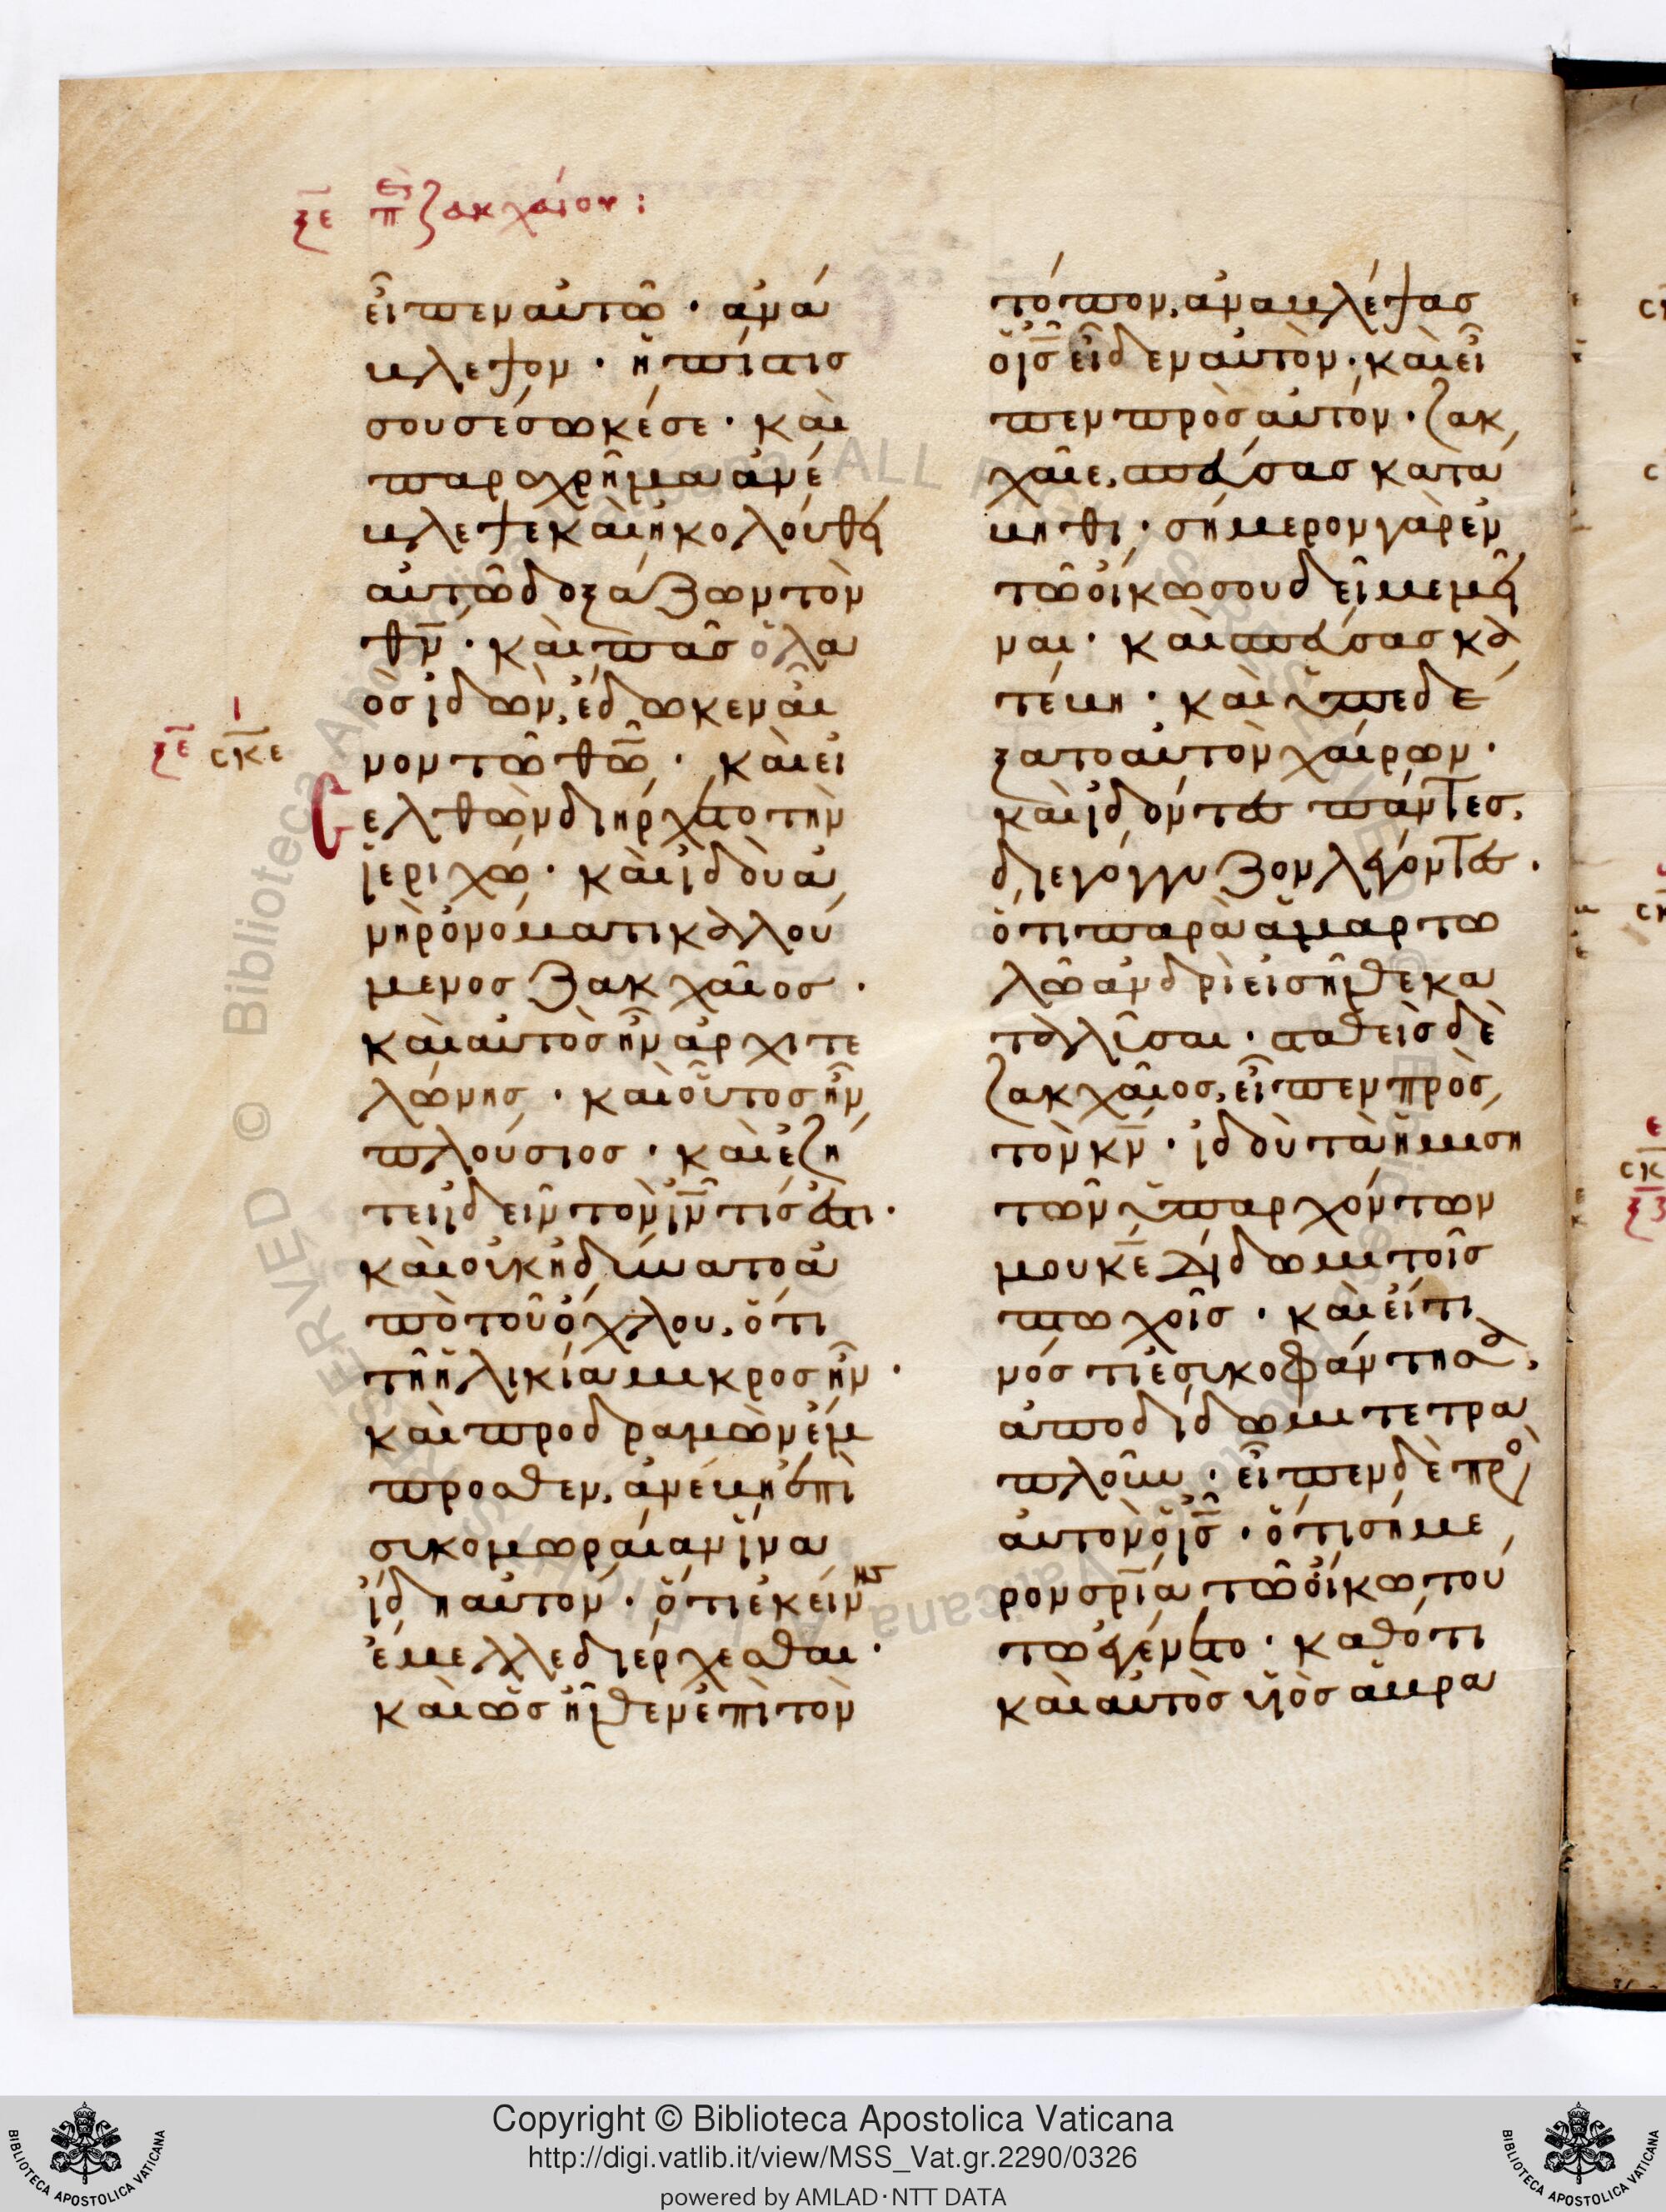 ξε περὶ ζακχαίου:
εἶπεν αὐτῶ· ἀνά
βλεψον· ἡ πίστις
σου σέσωκέ σε· καὶ
παραχρῆμα ἀνέ
βλεψε καὶ ἠκολούθει
αὐτῶ δοξάζων τὸν
θν· καὶ πᾶς ὁ λα
ὸς ἰδὼν, ἔδωκεν αἶ
νον τῶ θῶ· καὶ εἰ
ξε ι σκε
ελθὼν διήρχετο τὴν
ἰεριχώ· καὶ ἰδοὺ ἀ
νὴρ ὀνόματι καλού
μενος ζακχαῖος·
καὶ αὐτὸς ἦν ἀρχιτε
λώνης· καὶ οὗτος ἦν
πλούσιος· καὶ ἐζή
τει ἰδεῖν τὸν ιν τίς ἐστι·
καὶ οὐκ ἠδύνατο ἀ
πὸ τοῦ ὄχλου, ὅτι
τῆ ἡλικία μικρος ἦν·
καὶ προδραμὼν ἔμ
προσθεν, ἀνέβη ἐπὶ
συκομωραίαν ἵνα
ἴδη αὐτόν· ὅτι ἐκείνης
ἔμελλε διέρχεσθαι·
καὶ ὡς ἦλθεν ἐπὶ τὸν
τόπον, ἀναβλέψας
ὁ ις εἶδεν αὐτὸν· καὶ εἶ
πεν πρὸς αὐτόν· ζακ
χαῖε, σπεύσας κατά
βηθι· σήμερον γὰρ ἐν
τῶ οἴκω σου δεῖ με μεῖ
ναι· καὶ σπεύσας κα
τέβη· καὶ ὑπεδέ
ξατο αὐτὸν χαίρων·
καὶ ἰδόντες πάντες,
διεγόγγυζον λέγοντες·
ὅτι παρὰ ἁμαρτω
λῶ ἀνδρὶ εἰσῆλθε κα
ταλῦσαι· σταθεὶς δὲ
ζακχαῖος, εἶπεν πρὸς
τὸν κν· ἰδοὺ τὰ ἡμίση
τῶν ὑπαρχόντων
μου κε δίδωμι τοῖς
πτωχοῖς· καὶ εἴ τι
νός τι ἐσυκοφάντησα,
ἀποδίδωμι τετρα
πλοῦν· εἶπεν δὲ πρὸς
αὐτὸν ὁ ις· ὅτι σήμε
ρον σρία τῶ οἴκω τού
τω ἐγένετο· καθότι
καὶ αὐτὸς υἱὸς ἀβρα
Copyright © Biblioteca Apostolica Vaticana
http://digi.vatlib.it/view/MSS_Vat.gr.2290/0326
powered by AMLAD·NTT DATA
BIBLIOTECA APOSTOLICA VATICANA
BIBLIOTECA APOSTOLICA VATICANA